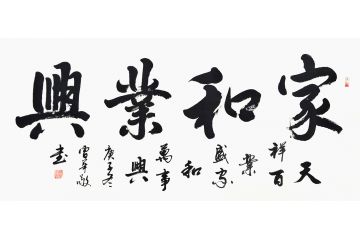 家和業興
天
祥百
業
盛家
和
萬事
興
庚子冬
敬
書